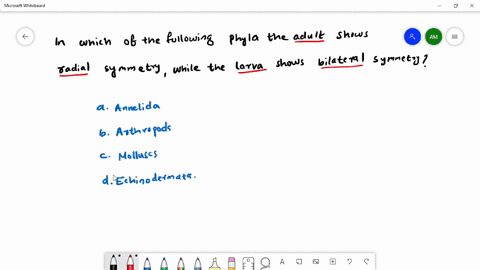 Microsoft Whiteboard
AM
In which of the following phyla the adult shows
radial symmetry, while the larva shows bilateral symmetry?
a. Annelida
b. Arthropods
c. Molluscs
d. Echinodermata.